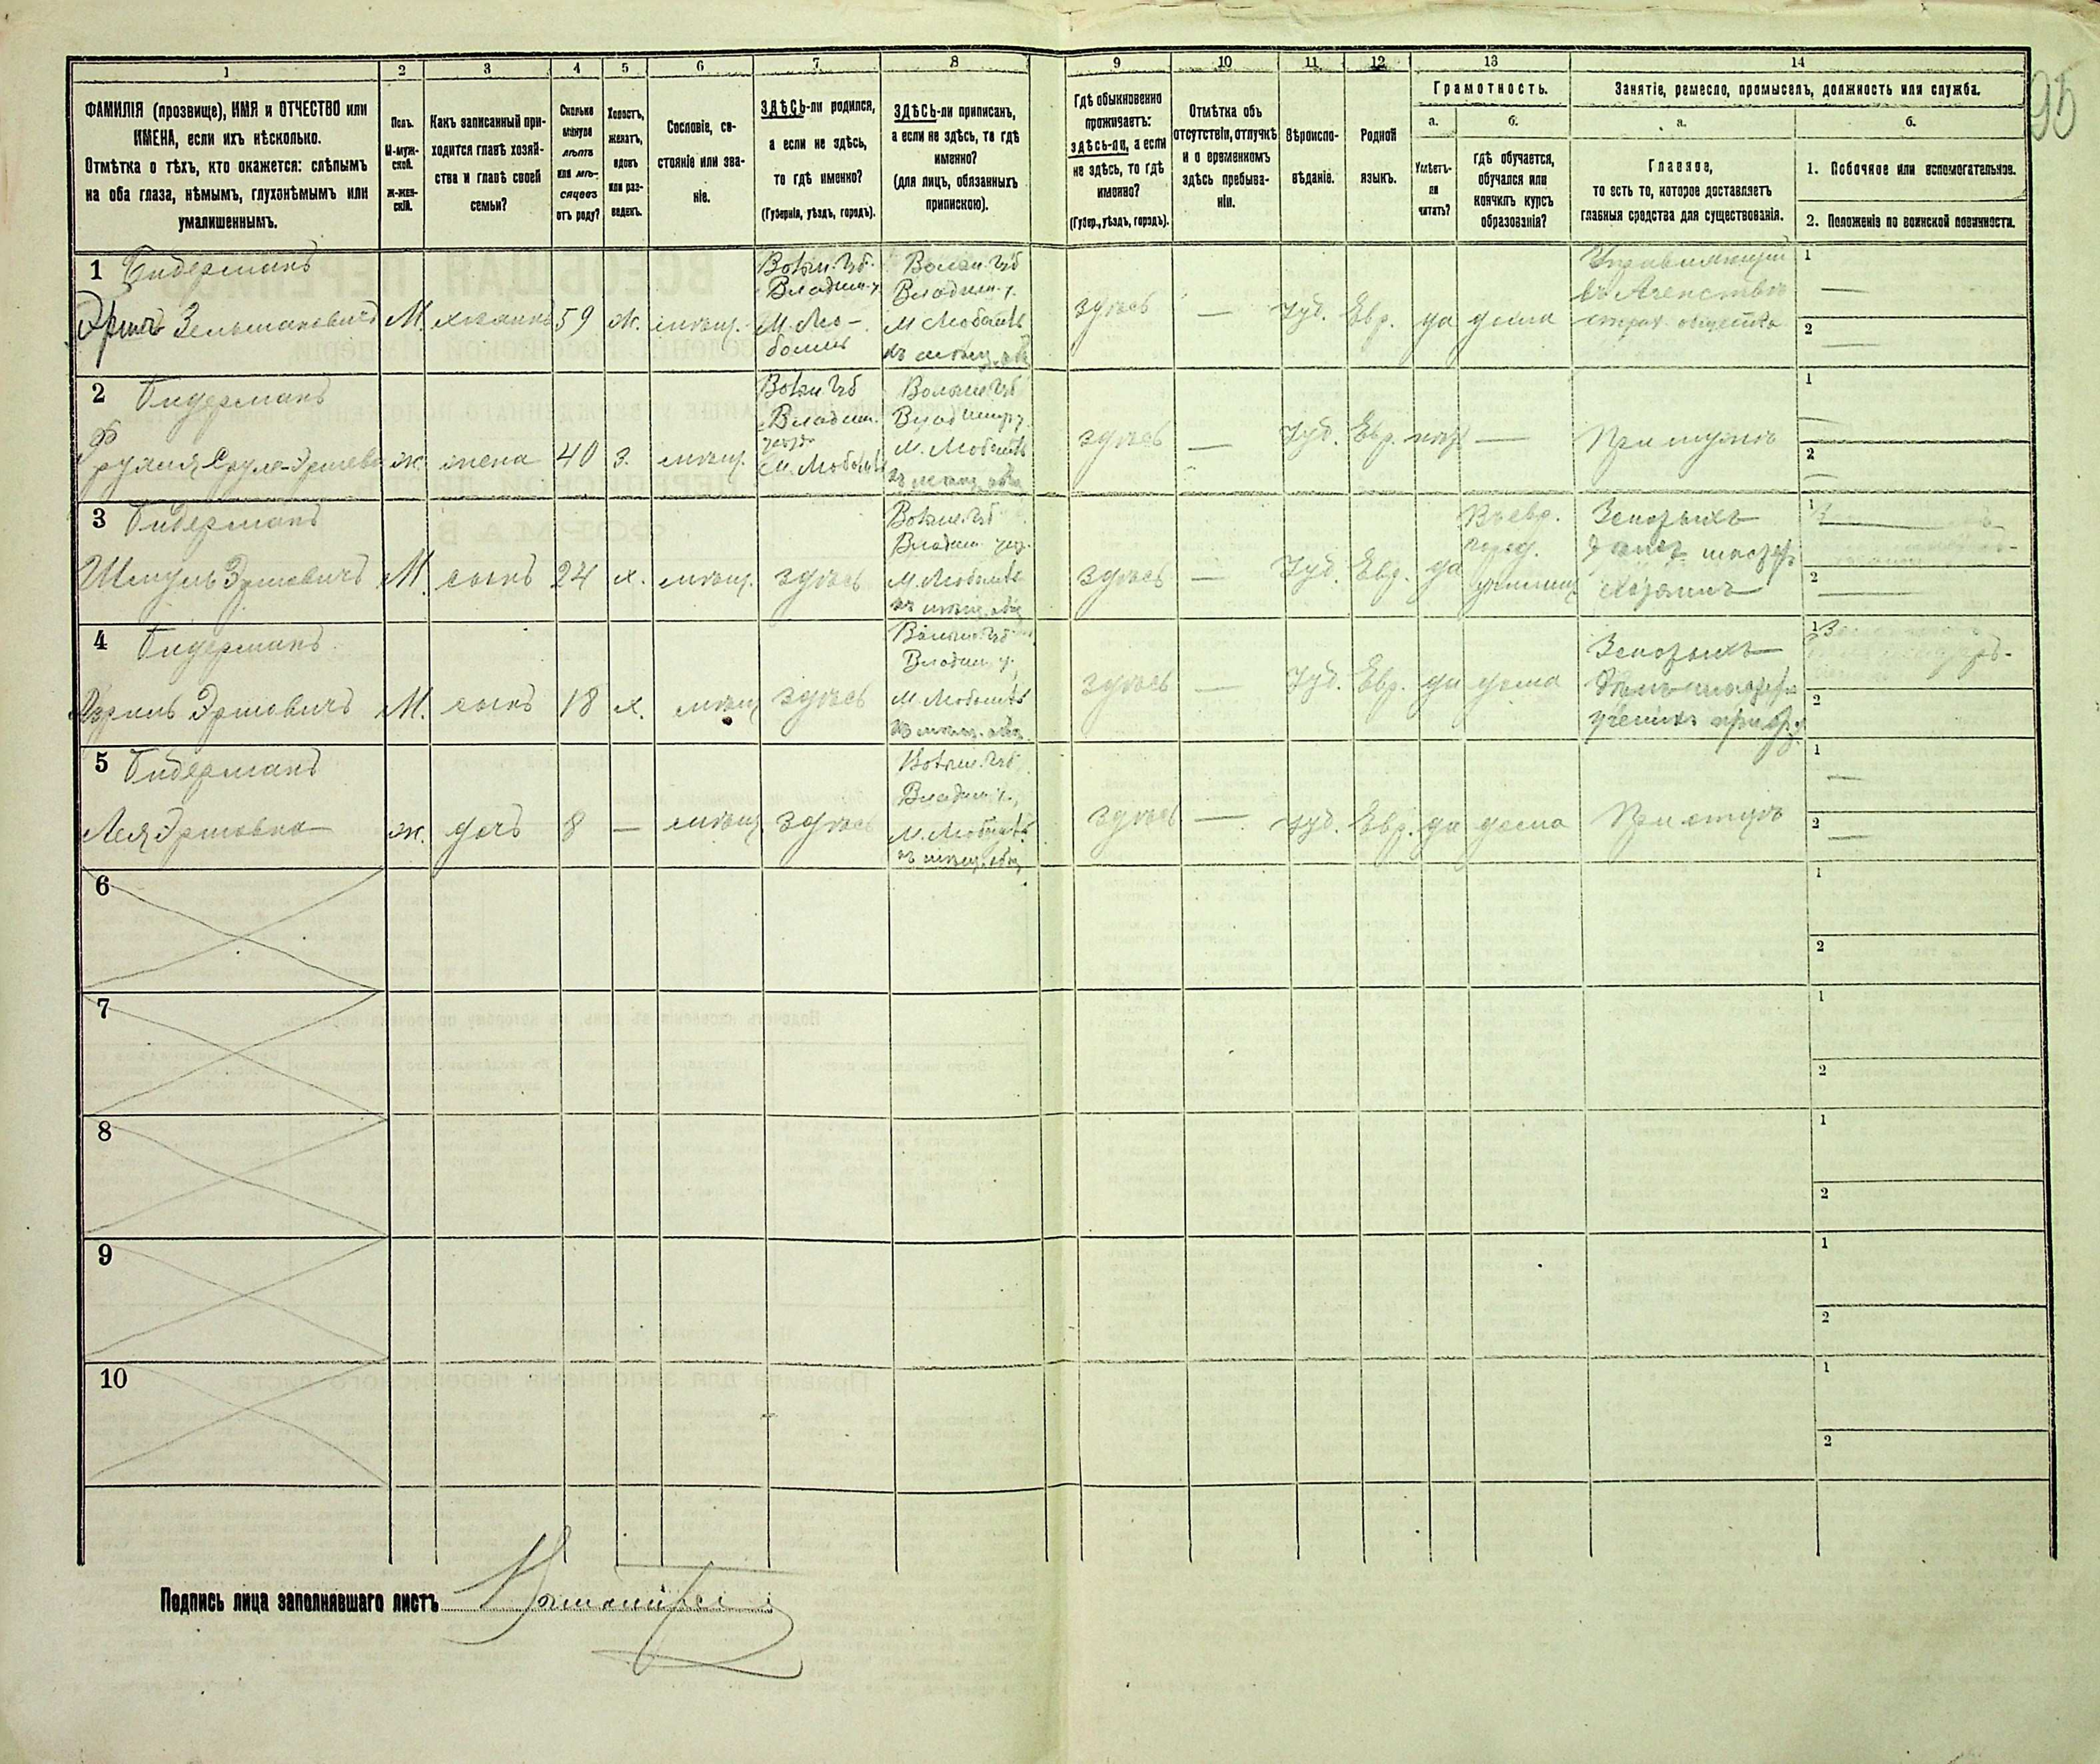 95
1 2 3 4 5 6 7 8 9 10 11 12 13 14
ФАМИЛІЯ (прозвище), ИМЯ и ОТЧЕСТВО или
ИМЕНА, если ихъ нѣсколько.
Отмѣтка о тѣхъ, кто окажется: слѣпымъ
на оба глаза, нѣмымъ, глухонѣмымъ или
умалишеннымъ.
Полъ.
М-муж-
ской.
Ж-жен-
скій.
Какъ записанный при-
ходится главѣ хозяй-
ства и главѣ своей
семьи?
Сколько
минуло
лѣтъ
или мѣ-
сяцевъ
отъ роду?
Холостъ,
женатъ,
вдовъ
или раз-
веденъ.
Сословіе, со-
стояніе или зва-
ніе.
ЗДѢСЬ-ли родился,
а если не здѣсь,
то гдѣ именно?
(Губернія, уѣздъ, городъ).
ЗДѢСЬ-ли приписанъ,
а если не здѣсь, то гдѣ
именно?
(для лицъ, обязанныхъ
припискою).
Гдѣ обыкновенно
проживаетъ:
здѣсь-ли, а если
не здѣсь, то гдѣ
именно?
(Губер., уѣздъ, городъ).
Отмѣтка объ
отсутствіи, отлучкѣ
и о временномъ
здѣсь пребыва-
ніи.
Вѣроиспо-
вѣданіе.
Родной
языкъ.
Грамотность.
а.
Умѣетъ-
ли
читать?
б.
гдѣ обучается,
обучался или
кончилъ курсъ
образованія?
Занятіе, ремесло, промыселъ, должность или служба.
а.
Главное,
то есть то, которое доставляетъ
главныя средства для существованія.
б.
1. Побочное или вспомогательное.
2. Положеніе по воинской повинности.
1 Бидерманъ
Эршъ Зельмановичъ М. хозяинъ 59 ж. мѣщ.
Волын. Губ.
Владим. у.
М. Лю-
бомль
Волын. Губ
Владим. у.
М Любомль
въ мѣщ. общ
здѣсь — Іуд. Евр. да дома
Управляющій
въ Агенствѣ
страх. общества
1 —
2 —
2 Бидерманъ
ж. жена 40 з. мѣщ.
Волын Губ
Владим.
уѣзд
М. Любомль
Волын. Губ
Владимір. у.
М. Любомль
въ мѣщ. общ
здѣсь — Іуд. Евр. нѣтъ — При мужѣ
1 —
2 —
3 Бидерманъ
Шмуль Эршовичъ М. сынъ 24 х. мѣщ. здѣсь
Волын. Губ
Владим. уѣз.
М. Любомль
въ мѣщ. общ
здѣсь — Іуд. Евр. да
Въ евр.
город.
училищ.
Хозяинъ
1
2 —
4 Бидерманъ
Эршовичъ М. сынъ 18 х. мѣщ здѣсь
Волын. Губ
Владим. у.
М Любомль
въ мѣщ. общ
здѣсь — Іуд. Евр. да дома
1
2
5 Бидерманъ
Лея Эршовна ж. дочь 8 — мѣщ здѣсь
Волын. Губ
Владим. у.
М. Любомль
въ мѣщ. общ
здѣсь — Іуд. Евр. да дома При отцѣ
1 —
2 —
6 1
2
7 1
2
8 1
2
9 1
2
10 1
2
Подпись лица заполнявшаго листъ